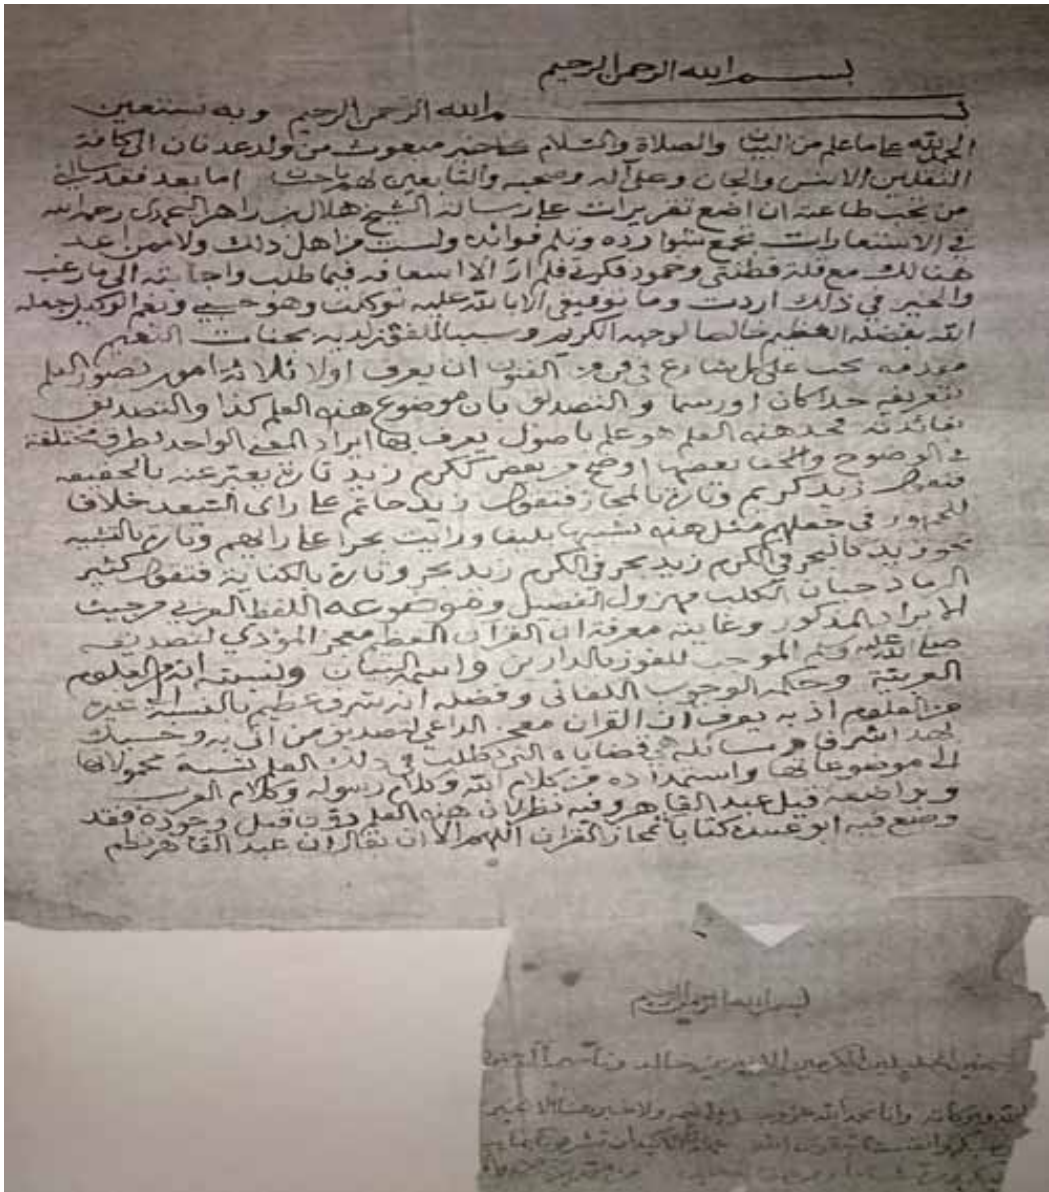 بسم الله الرحمن الرحيم
بسم الله الرحمن الرحيم وبه نستعين
الحمد لله على ما علم من البيان والصلاة والسلام على خير مبعوث من ولد عدنان الى كافة
الثقلين الانس والجان وعلى آله وصحبه والتابعين لهم باحسان اما بعد فقد سالني
من تجب طاعته ان اضع تقريرات على رسالة الشيخ هلال بن زاهر رحمه الله
في الاستعارات تجمع شوارده وتلم فوائده ولست من اهل ذلك ولا ممن اعد
هنالك مع قلة فطنتي وخمود فكرتي فلم ار الا اسعافه فيما طلب واجابته الى ما رغب
والخير في ذلك اردت وما توفيقي الا بالله عليه توكلت وهو حسبي ونعم الوكيل جعله
الله بفضله العظيم خالصا لوجهه الكريم وسببا لديه بجنات النعيم
مقدمة يجب على كل شارع في فن من الفنون ان يعرف اولا ثلاثة امور تصور العلم
بتعريفه حدا كان او رسما والتصديق بان موضوع هذه العلم كذا والتصديق
بفائدته فحد هذه العلم هو علم باصول يعرف بها ايراد المعنى الواحد بطرق مختلفة
في الوضوح والخفا بعضها اوضح من بعض ككرم زيد تارة يعبر عنه بالحقيقة
فتقول زيد كريم وتارة بالمجاز فتقول زيد حاتم على راى السعد خلافا
للجمهور في جعلهم مثل هذه تشبيها بليغا ورايت بحرا على رايهم وتارة بالتشبيه
نحو زيد كالبحر في الكرم زيد بحر في الكرم زيد بحر وتارة بالكناية فتقول كثير
الرماد جبان الكلب مهزول الفصيل وموضوعه اللفظ العربي من حيث
الايراد المذكور وغايته معرفة ان القرآن العظيم معجز المؤدي لتصديقه
صلى الله عليه وسلم الموجب للفوز بالدارين واسمه البيان ونسبته انه من العلوم
العربية وحكمه الوجوب الكفائي وفضله انه شرف عظيم بالنسبة الى غيره
من العلوم اذ به يعرف ان القران معجز الداعي لتصديق من اتى به وحسبك
بهذا شرفا ومسائله هي قضاياه التي تطلب في ذلك العلم نسبة محمولاتها
الى موضوعاتها واستمداده من كلام الله وكلام رسوله وكلام العرب
وواضعه قيل عبد القاهر وفيه نظر لان هذه العلم دون قبل وجوده فقد
وضع فيه ابو عبيدة كتابا مجاز القران اللهم الا ان يقال ان عبد القاهر نظم
بسم الله الرحمن الرحيم